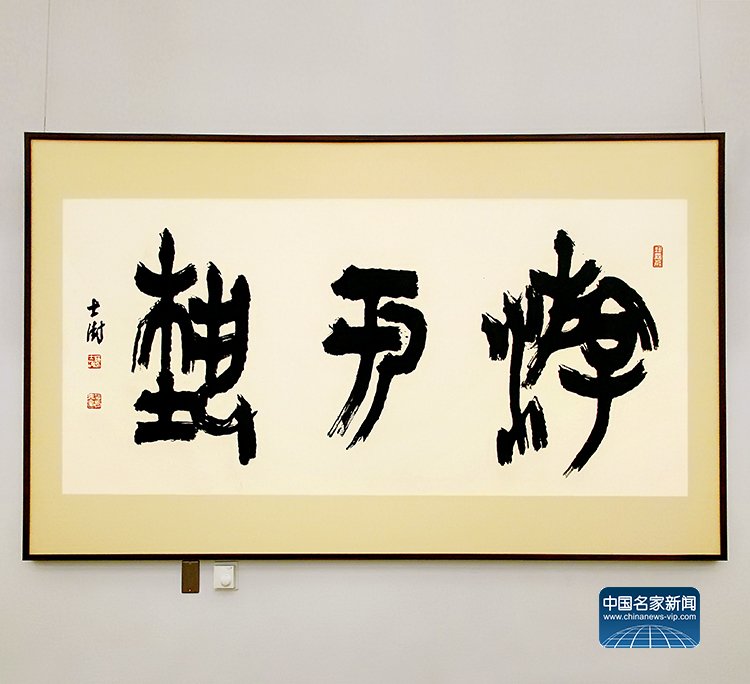 游于埶
士澍
中国名家新闻
www.chinanews-vip.com